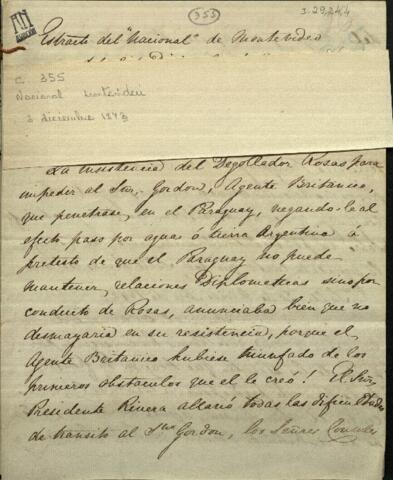 355
I-29,24,4
Estracto del "Nacional" de Montevideo
C. 355
Nacional Montevideo
3 diciembre 1843
La insistencia del Degollador Rosas para
impedir al Snr. Gordon, Agente Britanico,
que penetrase, en el Paraguay, negando-le al
efecto paso por aguas ó tierra Argentina á
pretesto de que el Paraguay no puede
mantener, relaciones Diplomaticas sino por
conducto de Rosas, anunciaba bien que no
desmayaria en su resistencia, porque el
Agente Britanico hubiese triunfado de los
primeros obstaculos que el le creó! El Snr.
Presidente Rivera allanó todas las dificultades
de transito al Snr Gordon, los Señores Consules